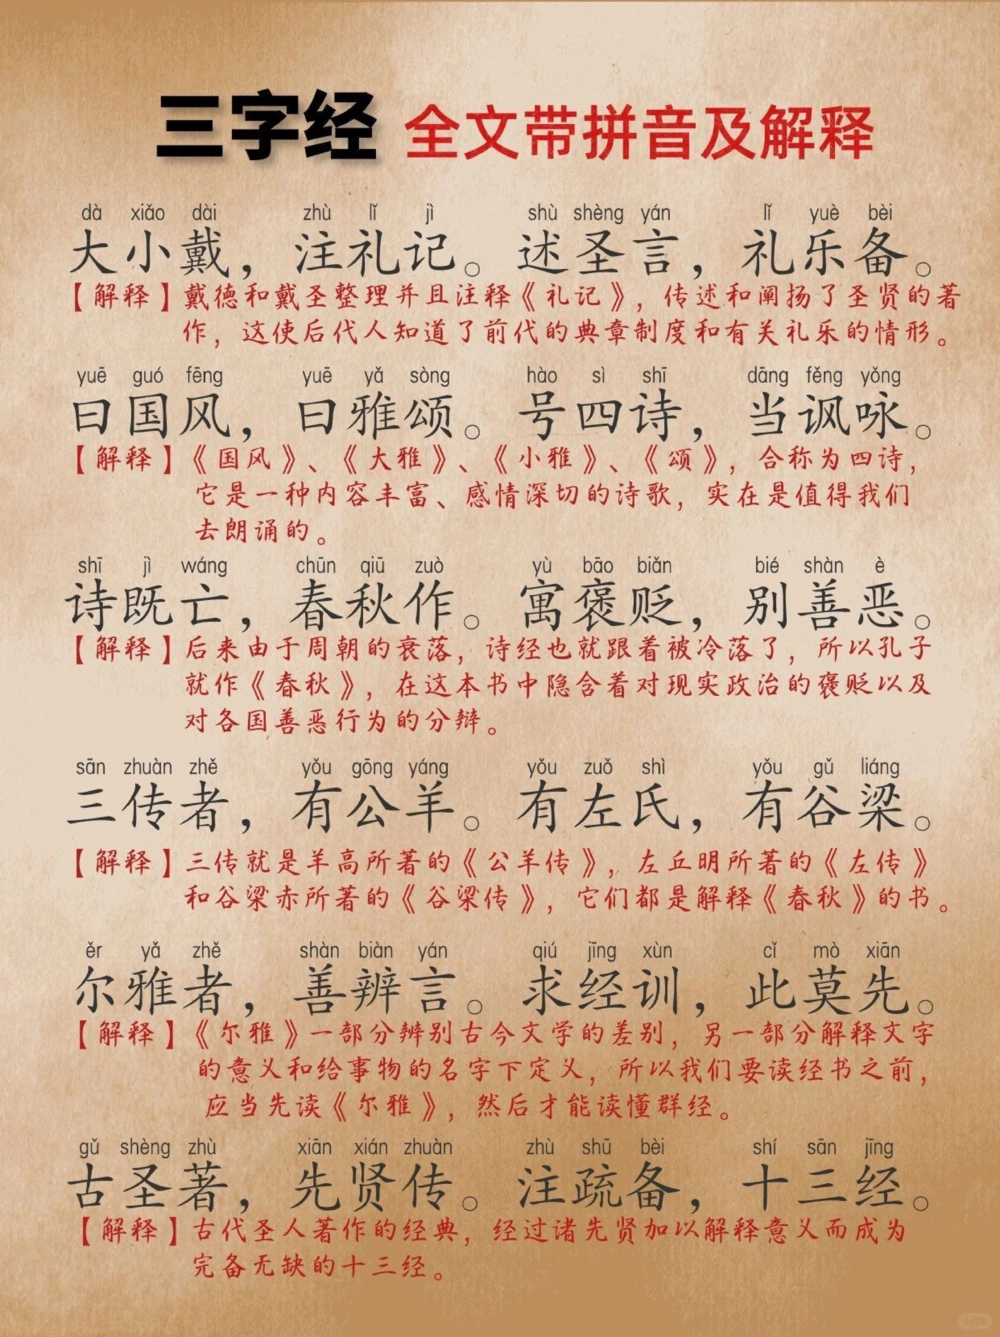 三字经 全文带拼音及解释
dà xiǎo dài zhù lǐ jì shù shèng yán lǐ yuè bèi
大小戴，注礼记。述圣言，礼乐备。
【解释】戴德和戴圣整理并且注释《礼记》，传述和阐扬了圣贤的著
作，这使后代人知道了前代的典章制度和有关礼乐的情形。
yuē guó fēng yuē yǎ sòng hào sì shī dāng fěng yǒng
曰国风，曰雅颂。号四诗，当讽咏。
【解释】《国风》、《大雅》、《小雅》、《颂》，合称为四诗，
它是一种内容丰富、感情深切的诗歌，实在是值得我们
去朗诵的。
shī jì wáng chūn qiū zuò yù bāo biǎn bié shàn è
诗既亡，春秋作。寓褒贬，别善恶。
【解释】后来由于周朝的衰落，诗经也就跟着被冷落了，所以孔子
就作《春秋》，在这本书中隐含着对现实政治的褒贬以及
对各国善恶行为的分辩。
sān zhuàn zhě yǒu gōng yáng yǒu zuǒ shì yǒu gǔ liáng
三传者，有公羊。有左氏，有谷梁。
【解释】三传就是羊高所著的《公羊传》，左丘明所著的《左传》
和谷梁赤所著的《谷梁传》，它们都是解释《春秋》的书。
ěr yǎ zhě shàn biàn yán qiú jīng xùn cǐ mò xiān
尔雅者，善辨言。求经训，此莫先。
【解释】《尔雅》一部分辨别古今文学的差别，另一部分解释文字
的意义和给事物的名字下定义，所以我们要读经书之前，
应当先读《尔雅》，然后才能读懂群经。
gǔ shèng zhù xiān xián zhuàn zhù shū bèi shí sān jīng
古圣著，先贤传。注疏备，十三经。
【解释】古代圣人著作的经典，经过诸先贤加以解释意义而成为
完备无缺的十三经。